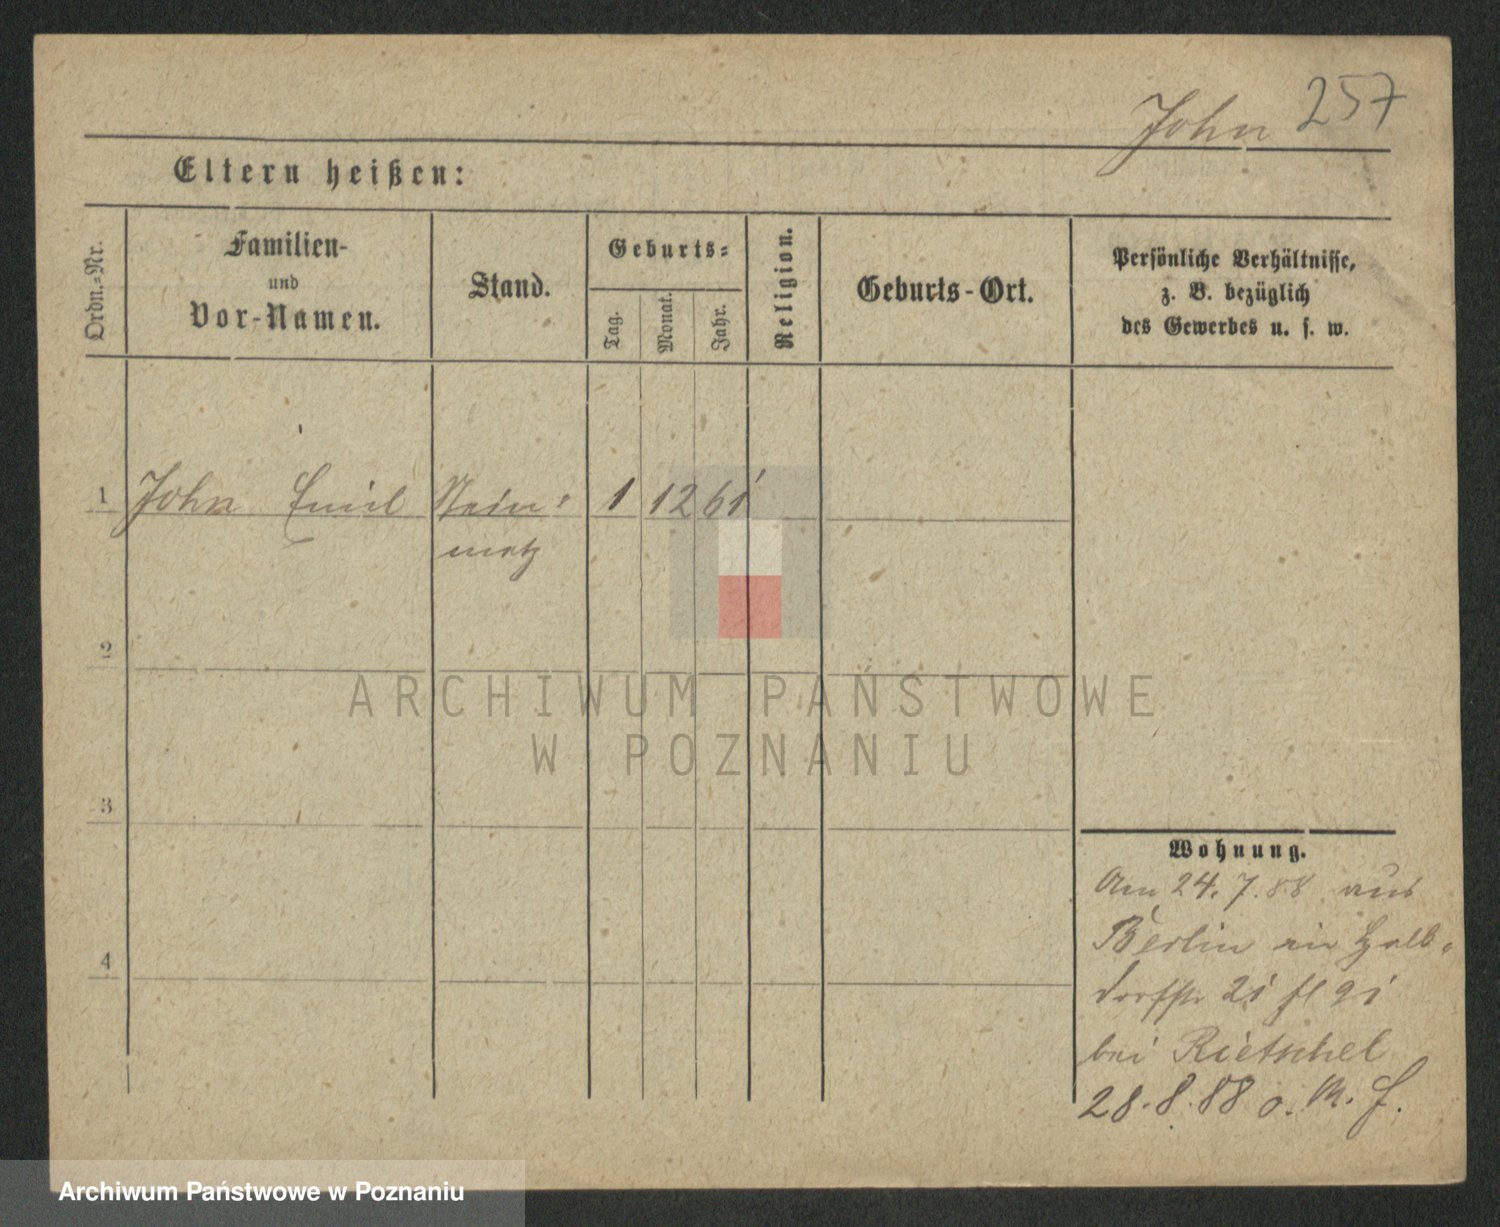 John 257
Eltern heißen:
Ordn.=Nr.
Familien-
und
Vor-Namen.
Stand.
Geburts=
Tag.
Monat.
Jahr.
Religion.
Geburts-Ort.
Persönliche Verhältnisse,
z. B. bezüglich
des Gewerbes u. s. w.
1 John Emil Stein= 1 12 61
metz
2
3
4
ARCHIWUM PAŃSTWOWE
W POZNANIU
Wohnung.
Am 24. 7. 88 aus
Berlin in Halb=
dorfstr 21
bei Rietschel
28. 8. 88 o.
Archiwum Państwowe w Poznaniu